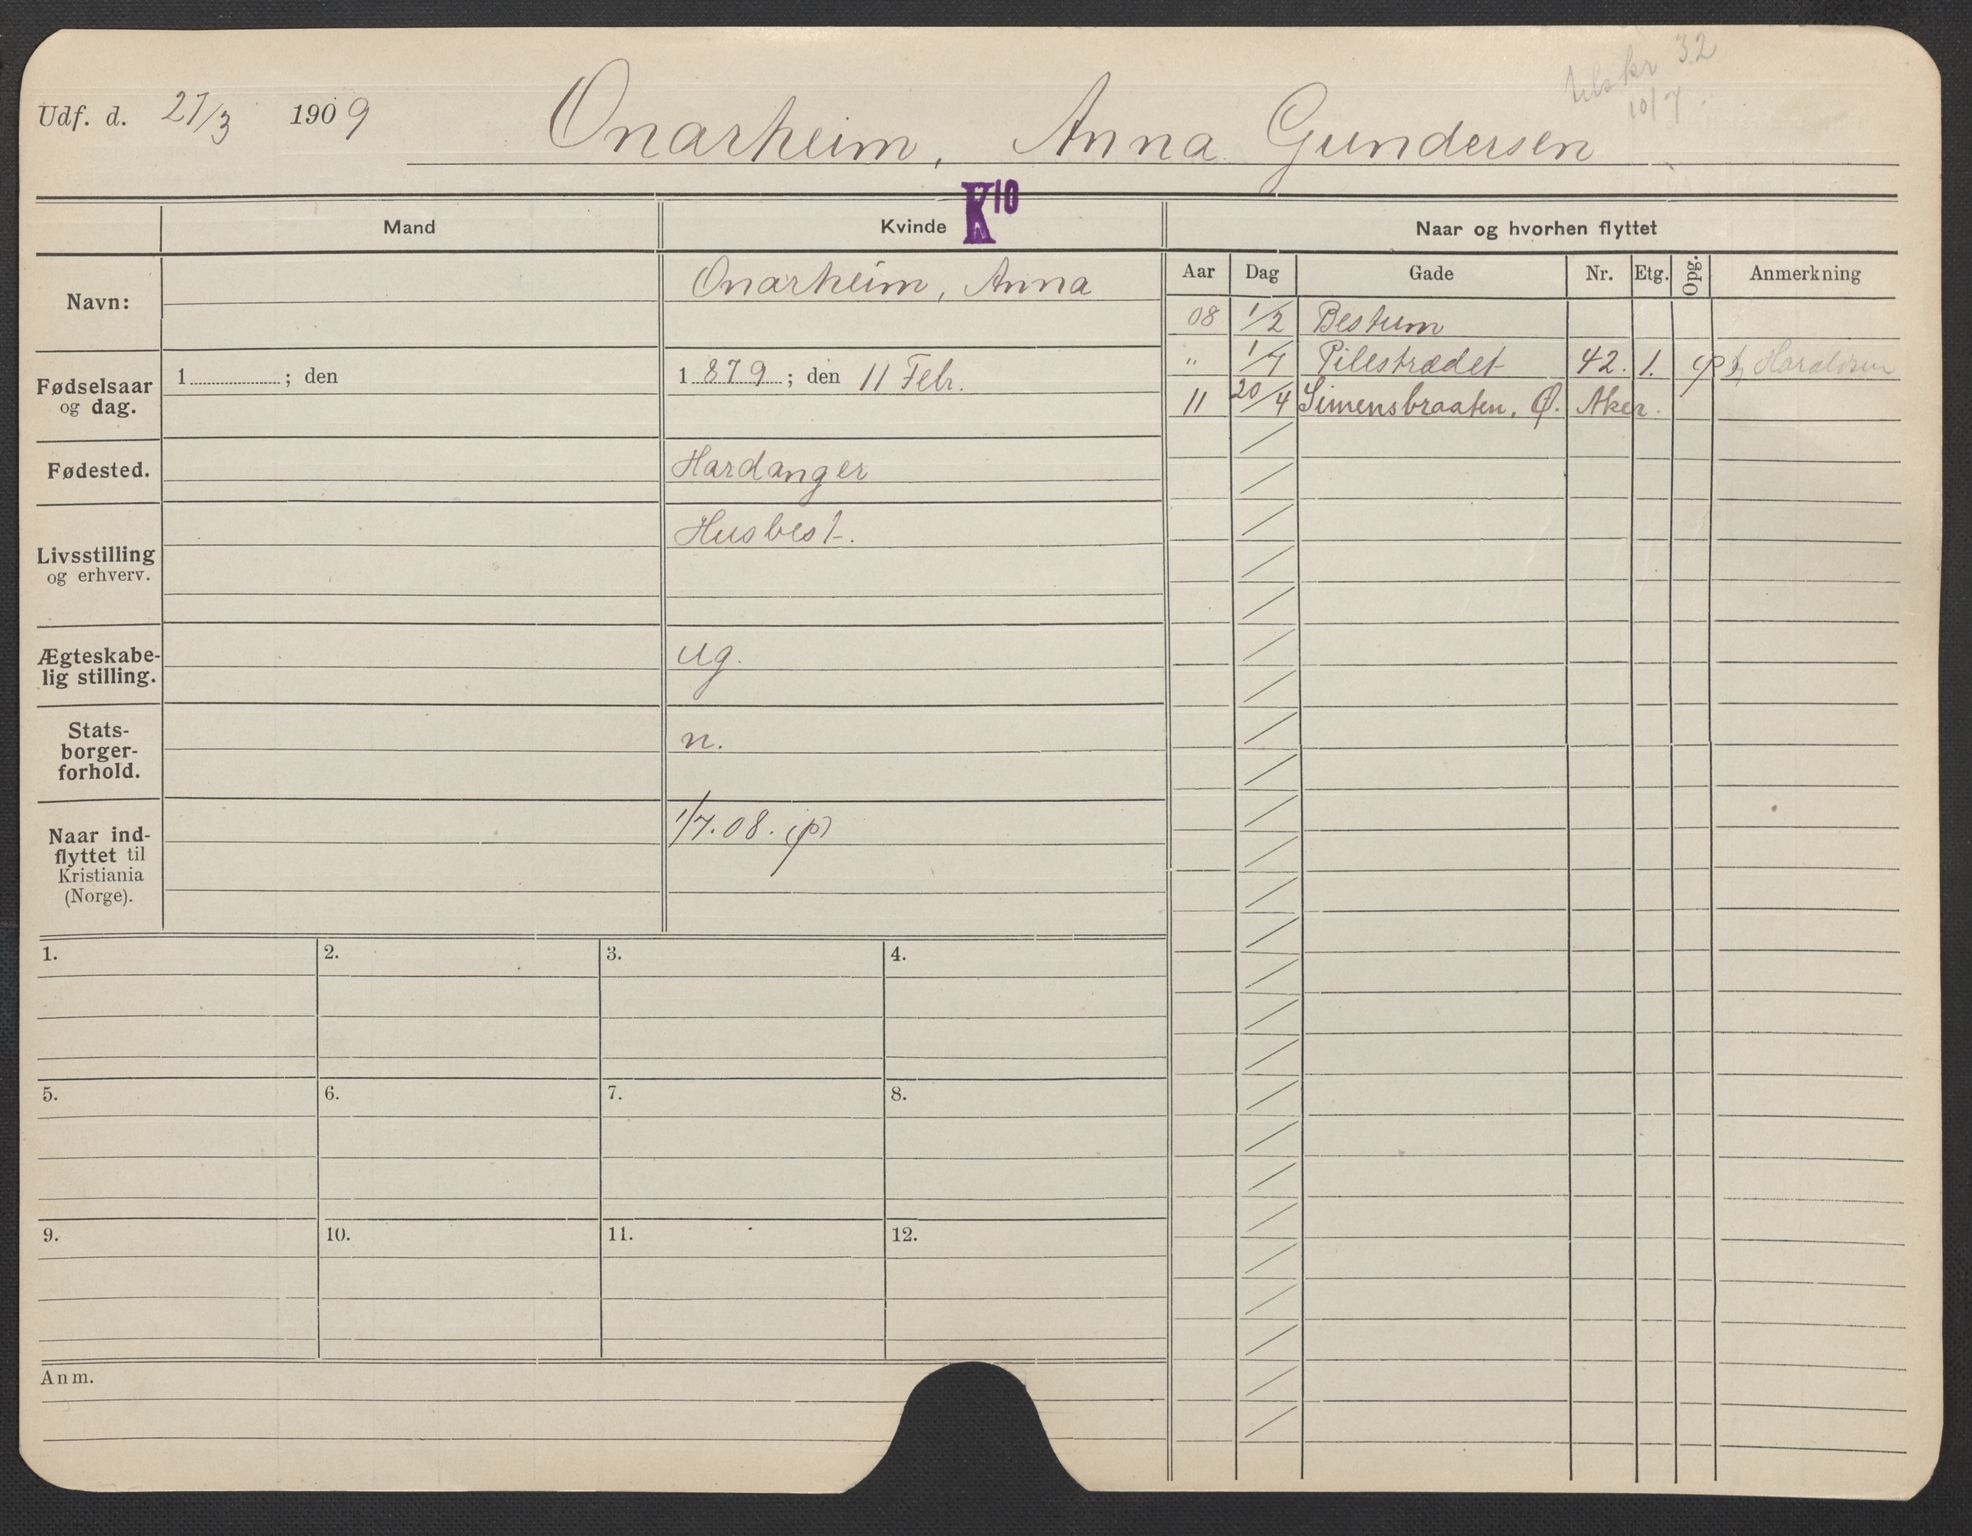 Udf. d. 27/3 1909 Onarheim, Anna Gundersen
32
10/7
K10
Mand Kvinde Naar og hvorhen flyttet
Aar Dag Gade Nr. Etg. Opg. Anmerkning
Navn: Onarheim, Anna
08 1/2 Bestum
" 1/7 Pilestrædet 42. 1. (p) Haraldsen
11 20/4 Simensbraaten, Ø. Aker.
Fødselsaar og dag. 1 ; den 1 879 ; den 11 Febr.
Fødested. Hardanger
Livsstilling og erhverv. Husbest.
Ægteskabe-
lig stilling. ug.
Stats-
borger-
forhold. n.
Naar ind-
flyttet til
Kristiania
(Norge). 1/7. 08. (p)
1. 2. 3. 4.
5. 6. 7. 8.
9. 10. 11. 12.
Anm.